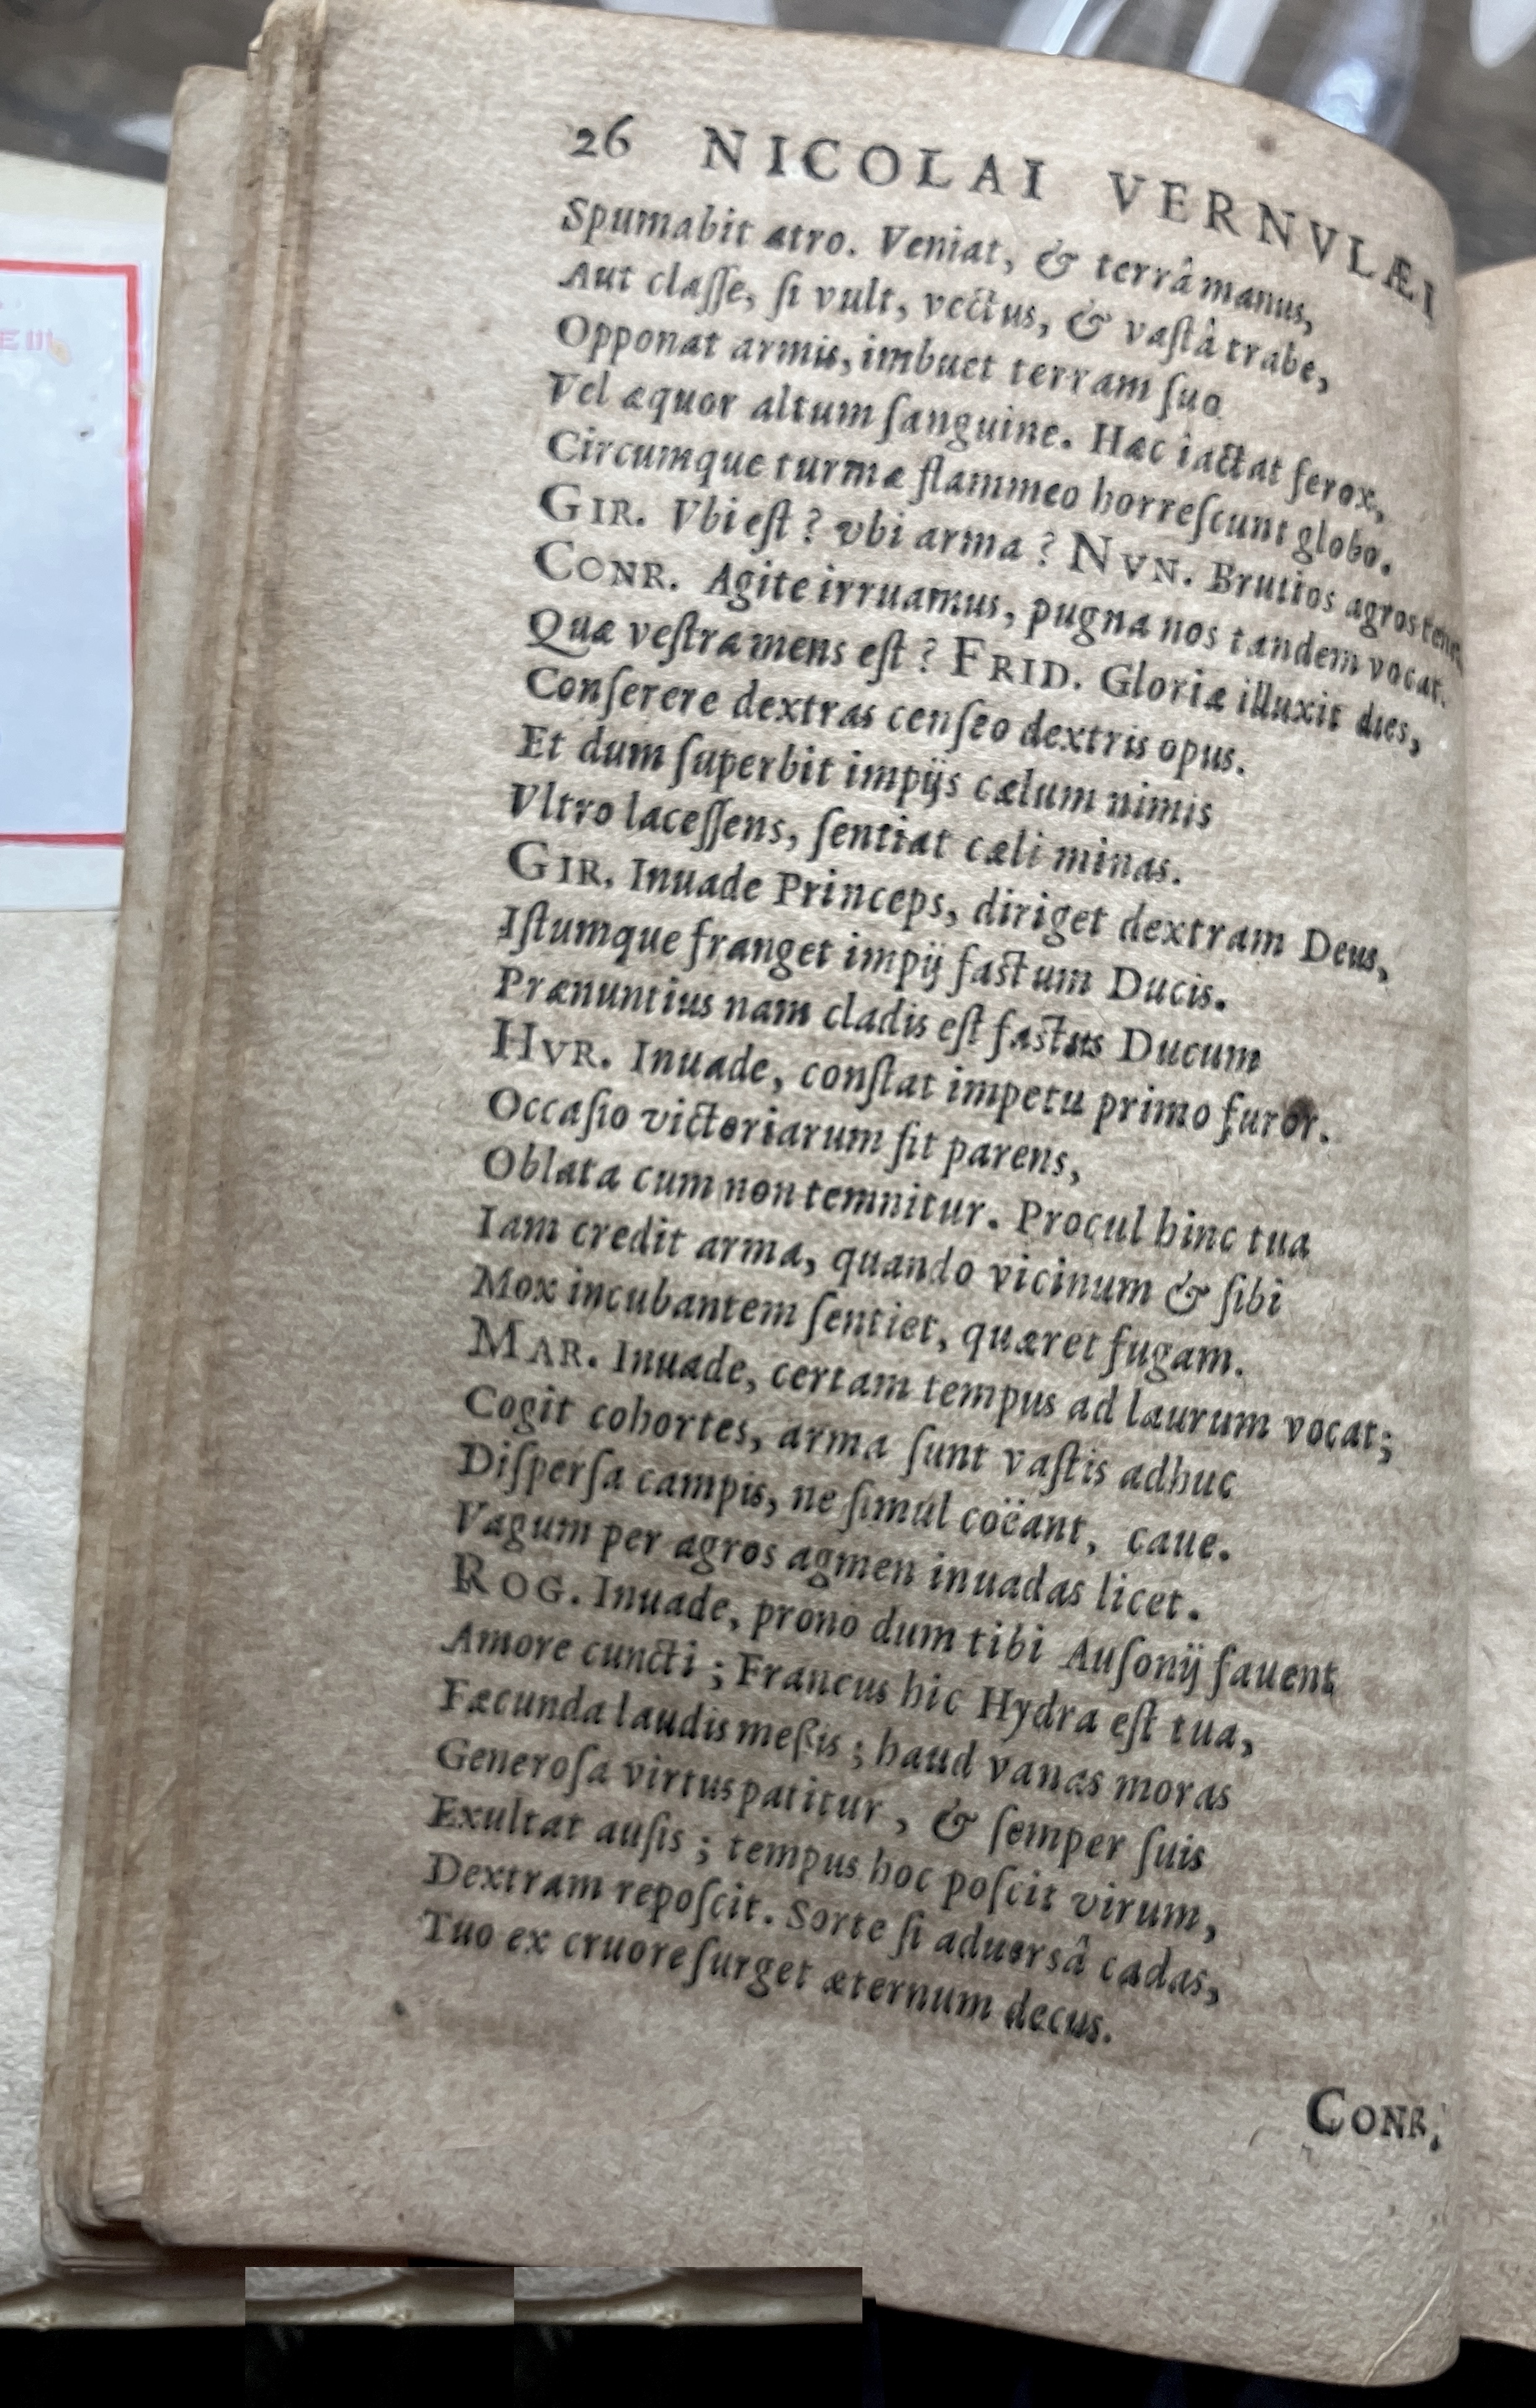 26 NICOLAI VERNVLÆI
Spumabit atro. Veniat, & terrâ manus,
Aut claſſe, ſi vult, vectus, & vaſtâ trabe,
Opponat armis, imbuet terram ſuo
Vel æquor altum ſanguine. Hæc iactat ferox,
Circumque turmæ flammeo horreſcunt globo.
GIR. Vbi eſt? vbi arma? NVN. Brutios agros
CONR. Agite irruamus, pugna nos tandem vocat.
Quæ veſtra mens eſt? FRID. Gloriæ illuxit dies,
Conſerere dextras cenſeo dextris opus.
Et dum ſuperbit impijs cælum nimis
Vltro laceſſens, ſentiat cæli minas.
GIR. Inuade Princeps, diriget dextram Deus,
Iſtumque franget impij faſtum Ducis.
Prænuntius nam cladis eſt faſtus Ducum
HVR. Inuade, conſtat impetu primo furor.
Occaſio victoriarum ſit parens,
Oblata cum non temnitur. Procul hinc tua
Iam credit arma, quando vicinum & ſibi
Mox incubantem ſentiet, quæret fugam.
MAR. Inuade, certam tempus ad laurum vocat;
Cogit cohortes, arma ſunt vaſtis adhuc
Diſperſa campis, ne ſimul coëant, caue.
Vagum per agros agmen inuadas licet.
ROG. Inuade, prono dum tibi Auſonij fauent
Amore cuncti; Francus hic Hydra eſt tua,
Fæcunda laudis meßis; haud vanas moras
Generoſa virtus patitur, & ſemper ſuis
Exultat auſis; tempus hoc poſcit virum,
Dextram repoſcit. Sorte ſi aduersâ cadas,
Tuo ex cruore ſurget æternum decus.
CONR.